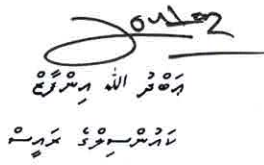 ޢަބްދު ﷲ އިންފާޒް
ކައުންސިލްގެ ރައީސް